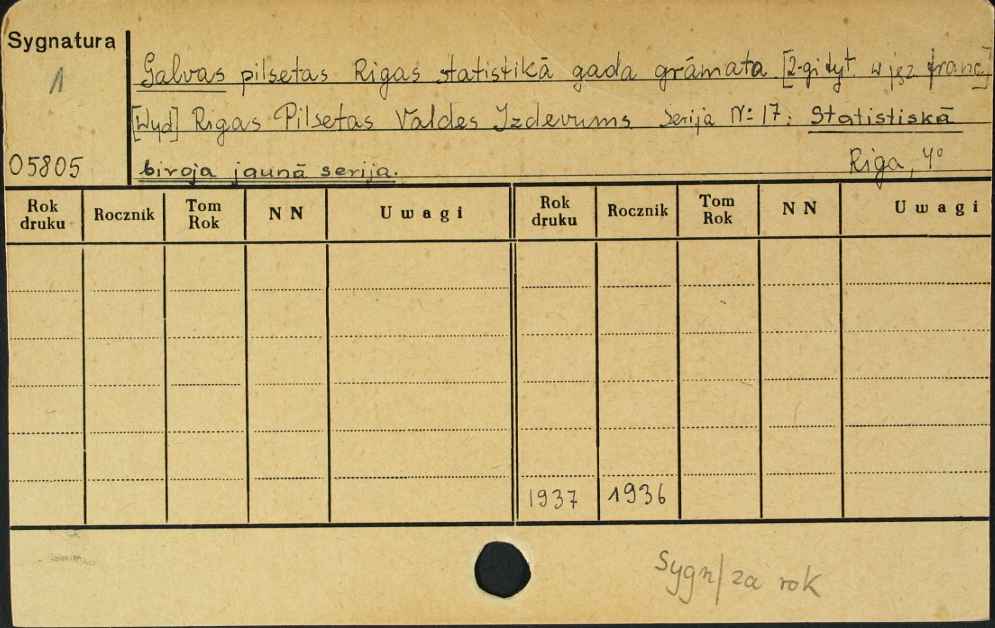 Sygnatura
1
Galvas pilsetas Rigas statistikā gada grāmata [2-gi tyt. w jęz franc]
[Wyd] Rigas Pilsetas Valdes Izdevums Serija № 17: Statistiskā
05805 biroja jaunā serija. Riga, 4°
Rok druku Rocznik Tom Rok NN Uwagi Rok druku Rocznik Tom Rok NN Uwagi
1937 1936
Sygn/za rok